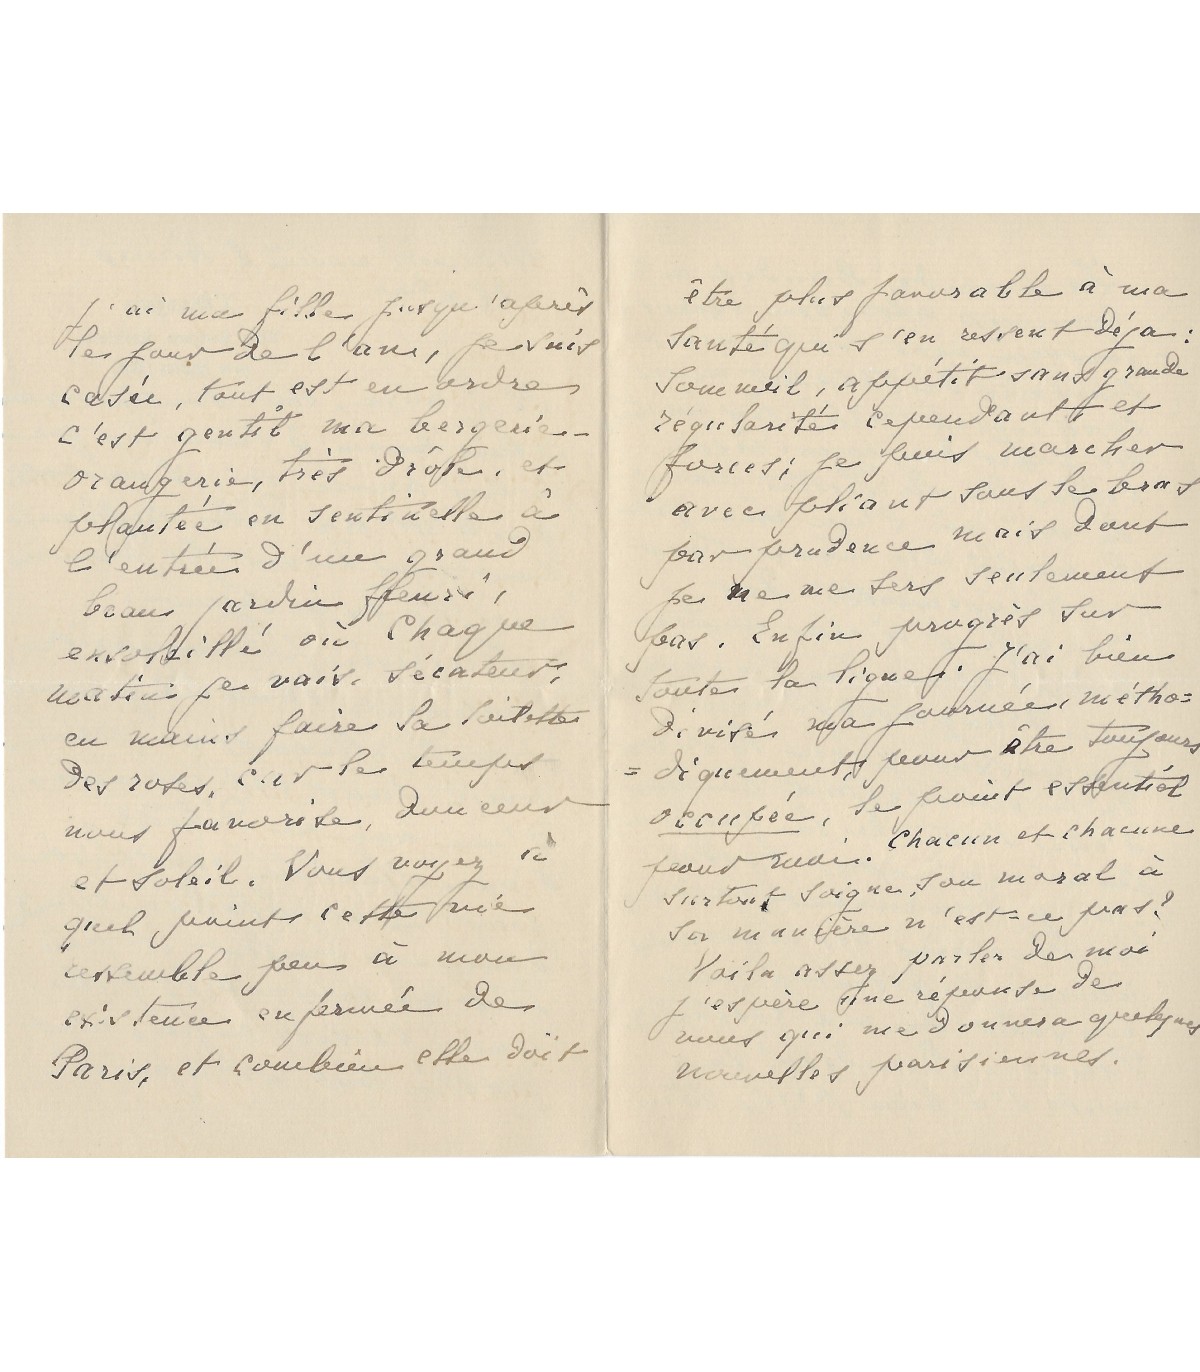 j'ai ma fille jusqu'après
le jour de l'an, je suis
casée, tout est en ordre
c'est gentil ma bergerie-
orangerie, très drôle, et
plantée en sentinelle à
l'entrée d'un grand
beau jardin fleuri,
ensoleillé où chaque
matin je vais, sécateur,
en mains faire la toilette
des roses, car le temps
nous favorise, douceur
et soleil. Vous voyez à
quel point cette vie
ressemble peu à mon
existence enfermée de
Paris, et combien elle doit
être plus favorable à ma
santé qui s'en ressent déjà:
sommeil, appétit sans grande
régularité cependant, et
forces; je puis marcher
avec pliant sous le bras
par prudence mais dont
je ne me sers seulement
pas. Enfin progrès sur
toute la ligne. J'ai bien
divisé ma journée, métho=
=diquement, pour être toujours
occupée, le point essentiel
pour moi. Chacun et chacune
surtout soigne, son moral à
sa manière n'est=ce pas?
Voilà assez parler de moi
j'espère une réponse de
vous qui me donnera quelques
nouvelles parisiennes.